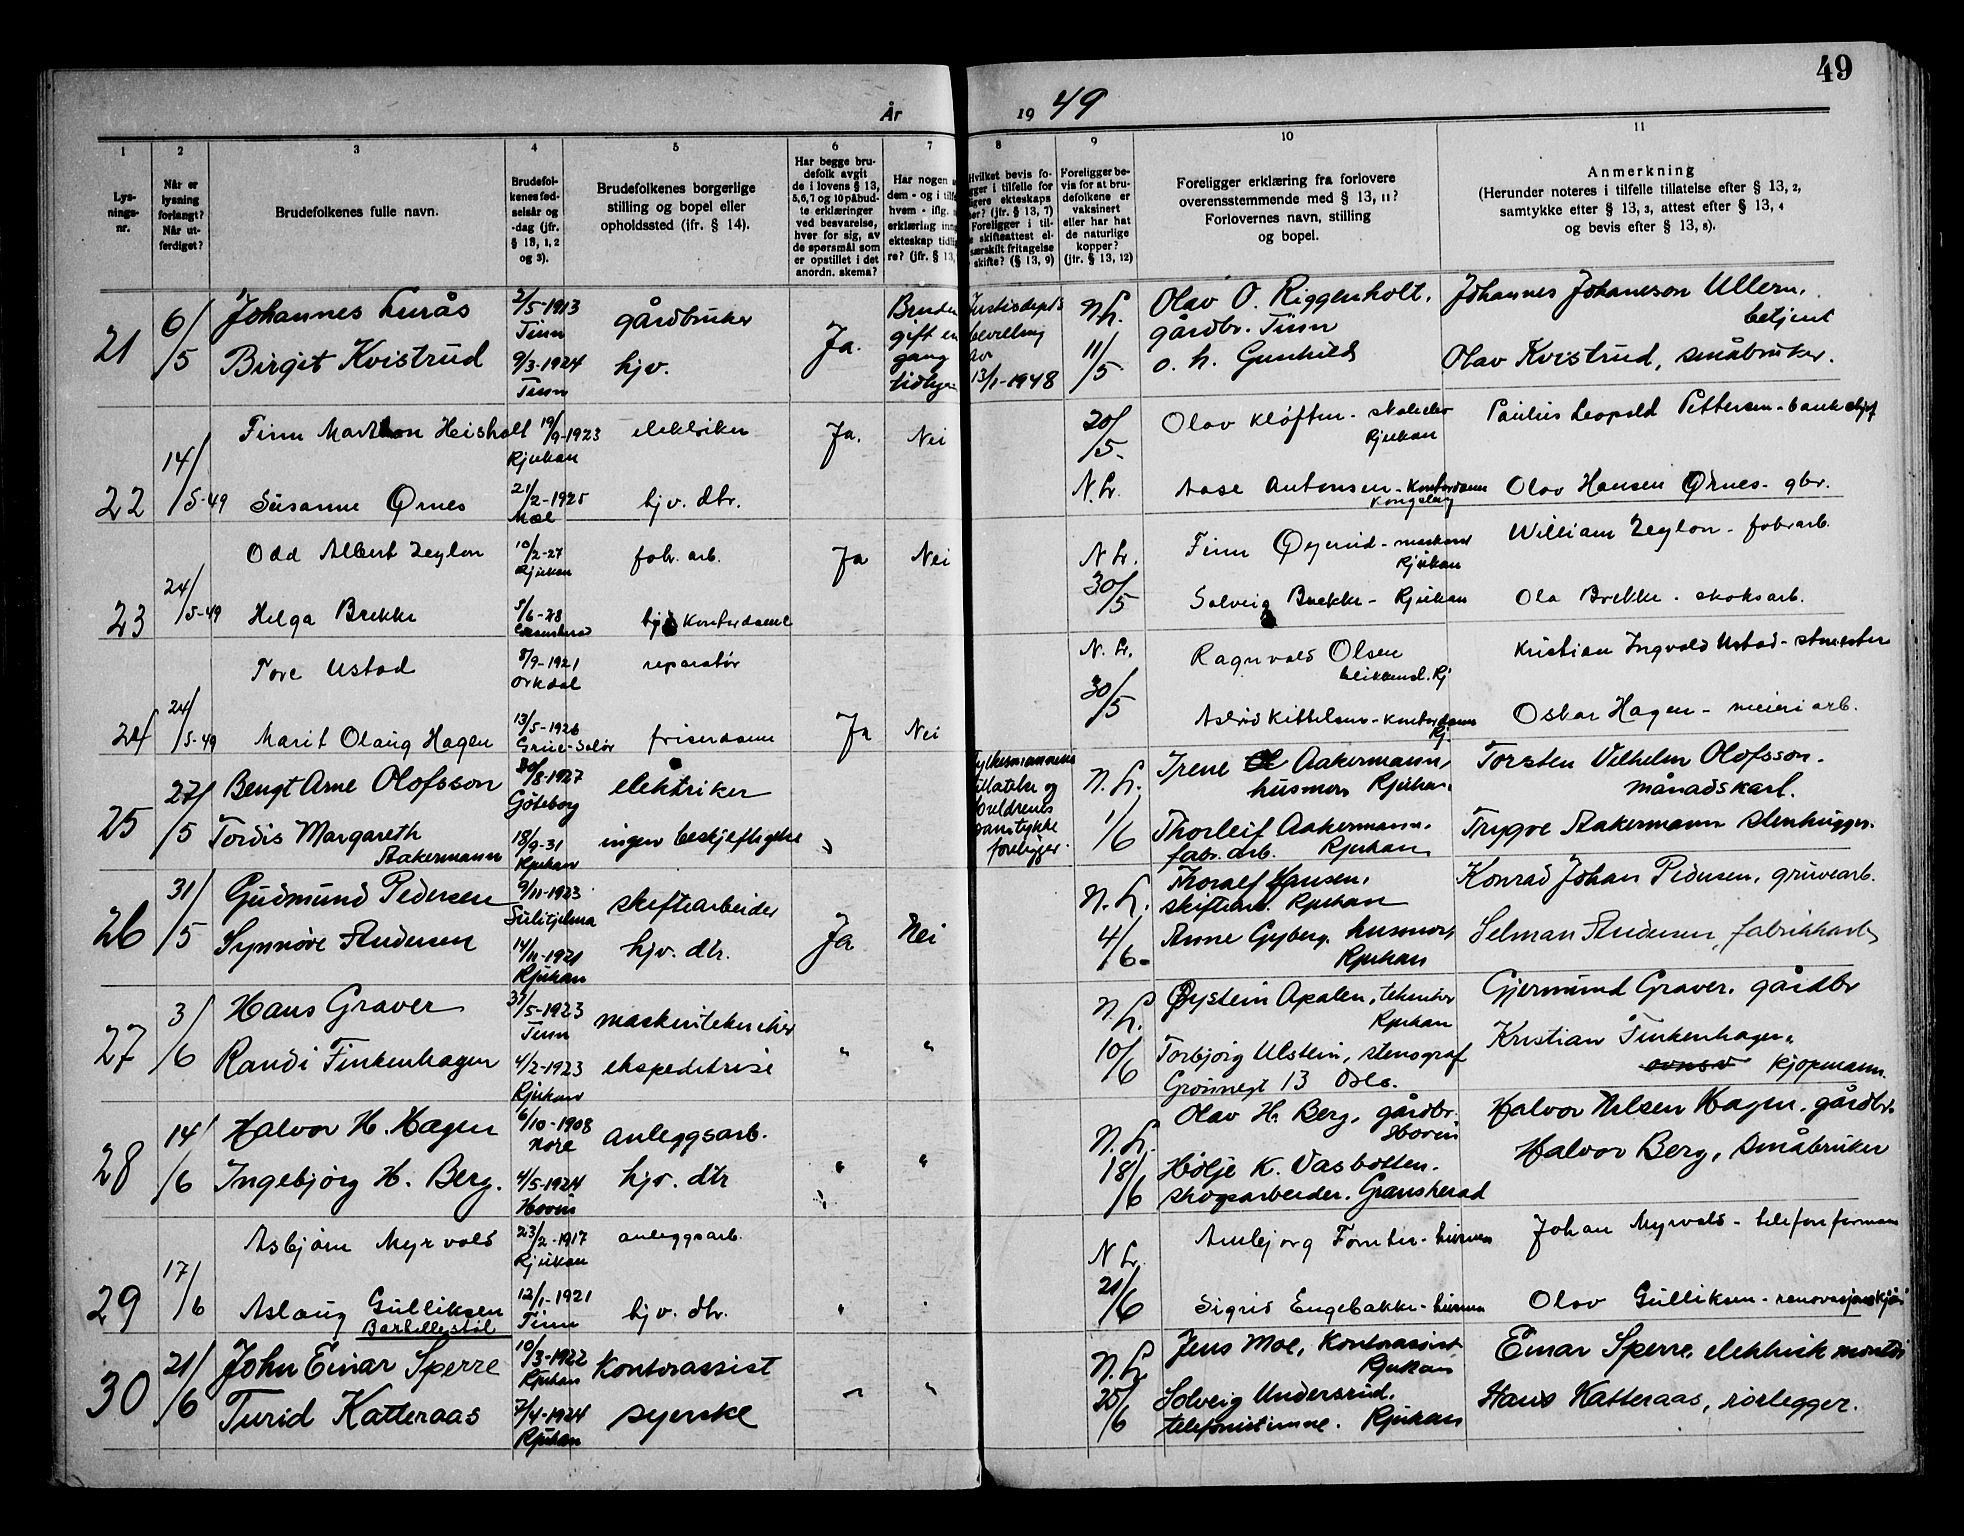 49
År 1949
1
Lysningsnr.
2
Når er lysning forlangt? Når utferdiget?
3
Brudefolkenes fulle navn.
4
Brudefolkenes fødselsår og -dag (jfr. § 13, 1, 2 og 3).
5
Brudefolkenes borgerlige stilling og bopel eller opholdssted (jfr. § 14).
6
Har begge brudefolk avgit de i lovens § 13, 5, 6, 7 og 10 påbudte erklæringer ved besvarelse, hver for sig, av de spørsmål som er opstillet i det anordn. skema?
7
Har nogen
dem - og i
hvem - iflg.
erklæring
ekteskap
re? (jfr. § 13,
8
Hvilket bevis fo-
gger i tilfelle for
ligere ekteskaps
? (jfr. § 13, 7)
Foreligger i til-
e skifteattest el-
særskilt fritagelse
skifte? (§ 13, 9)
9
Foreligger bevis for at brudefolkene er vaksinert eller har hat de naturlige kopper? (jfr. § 13, 12)
10
Foreligger erklæring fra forlovere overensstemmende med § 13, 11? Forlovernes navn, stilling og bopel.
11
Anmerkning
(Herunder noteres i tilfelle tillatelse efter § 13, 2, samtykke efter § 13, 3, attest efter § 13, 4 og bevis efter § 13, 8).
21 6/5 Johannes Lurås 2/5-1913 Tinn gårdbruker Ja. gift en gang 13/1-1948 N.L. Olav O. Riggenholt, gårdbr. Tinn Johannes Johanesson Ullern, betjent
Birgit Kvistrud 9/3-1924 Tinn hjv. 11/5 o. h. Gunhild Olav Kvistrud, småbruker.
22 14/5-49 Finn Heisholt 19/9-1923 Rjukan elektriker Ja. Nei 20/5- Olav Kløften - Rjukan Paulus Leopold Pettersen -
Susanne Ørnes 21/2-1925 Mæl hjv. dtr. N.L. Aase Antonsen - kontordame Kongsberg Olav Hansen Ørnes - gbr.
23 24/5-49 Odd Albert Zeylon 10/2-27 Rjukan fabr. arb. Ja Nei N.L. Finn Øyerud - Rjukan William Zeylon - fabr arb.
Helga Brekke 5/6-28 kontordame 30/5 Solveig Brekke - Rjukan Ola Brekke - skoksarb.
24 24/5-49 Tore Ustad 8/9-1921 Orkdal reparatør Ja Nei N.L. Ragnvald Olsen blikkensl. Rj Kristian Ingvald Ustad -
Marit Olaug Hagen 13/5-1926 Grue-Solør friserdame 30/5 Astrid Kittelsen - kontordame Rj. Oskar Hagen - meieriarb.
25 27/5 Bengt Arne Olofsson 30/8-1927 Göteborg elektriker tillatelse og foreldrenes samtykke foreligger. N.L. Irene Aakermann, husmor Rjukan. Torsten Vilhelm Olofsson. månadskarl.
Tordis Margareth Aakermann 18/9-31 Rjukan ingen beskjeftigelse 1/6 Thorleif Aakermann. fabr. arb. Rjukan Trygve Aakermann stenhugger.
26 31/5 Gudmund Pedersen 9/11-1923 Sulitjelma skiftarbeider Ja Nei N.L. Thoralf Hansen, skiftarb. Rjukan Konrad Johan Pedersen, gruvearb.
Synnøve Andersen 14/11-1921 Rjukan hjv. dtr. 4/6. Anne Gyberg, husmor, Rjukan Selman Andersen, fabrikkarb.
27 3/6 Hans Graver 31/5-1923 Tinn maskintekniker " " N.L. Øystein Apalen, tekniker Rjukan Gjermund Graver, gårdbr
Randi Finkenhagen 4/2-1923 Rjukan ekspeditrise 10/6 Torbjørg Ulstein, stenograf Grønnegt 13 Oslo. Kristian Finkenhagen, kjøpmann.
28 14/6 Halvor H. Hagen 6/10-1908 Nore anleggsarb. " " N.L. Olav H. Berg, gårdbr. Hovin Halvor Nilsen Hagen, gårdbr.
Ingebjørg H. Berg. 4/5-1924 Hovin hjv. dtr 18/6 Hølje K. Vasbotten. skogsarbeider. Gransherad Halvor Berg, småbruker
29 17/6 Asbjørn Myrvold 23/2-1917 Rjukan anleggsarb. " " N.L. Johan Myrvold - telefonformann
Aslaug Gulliksen 12/1-1921 Tinn hjv. dtr. 21/6 Sigrid Engebakke - husmor Olav Gulliksen -
30 21/6 John Einar Sperre 10/3-1922 Rjukan kontorassist " " N.L. Jens Moe, kontorassist Rjukan Einar Sperre, elektrisk montør
Turid Katteraas 7/4-1924 Rjukan syerske 25/6 Solveig Undersrud, telefonistinne. Rjukan Hans Katteraas, rørlegger.